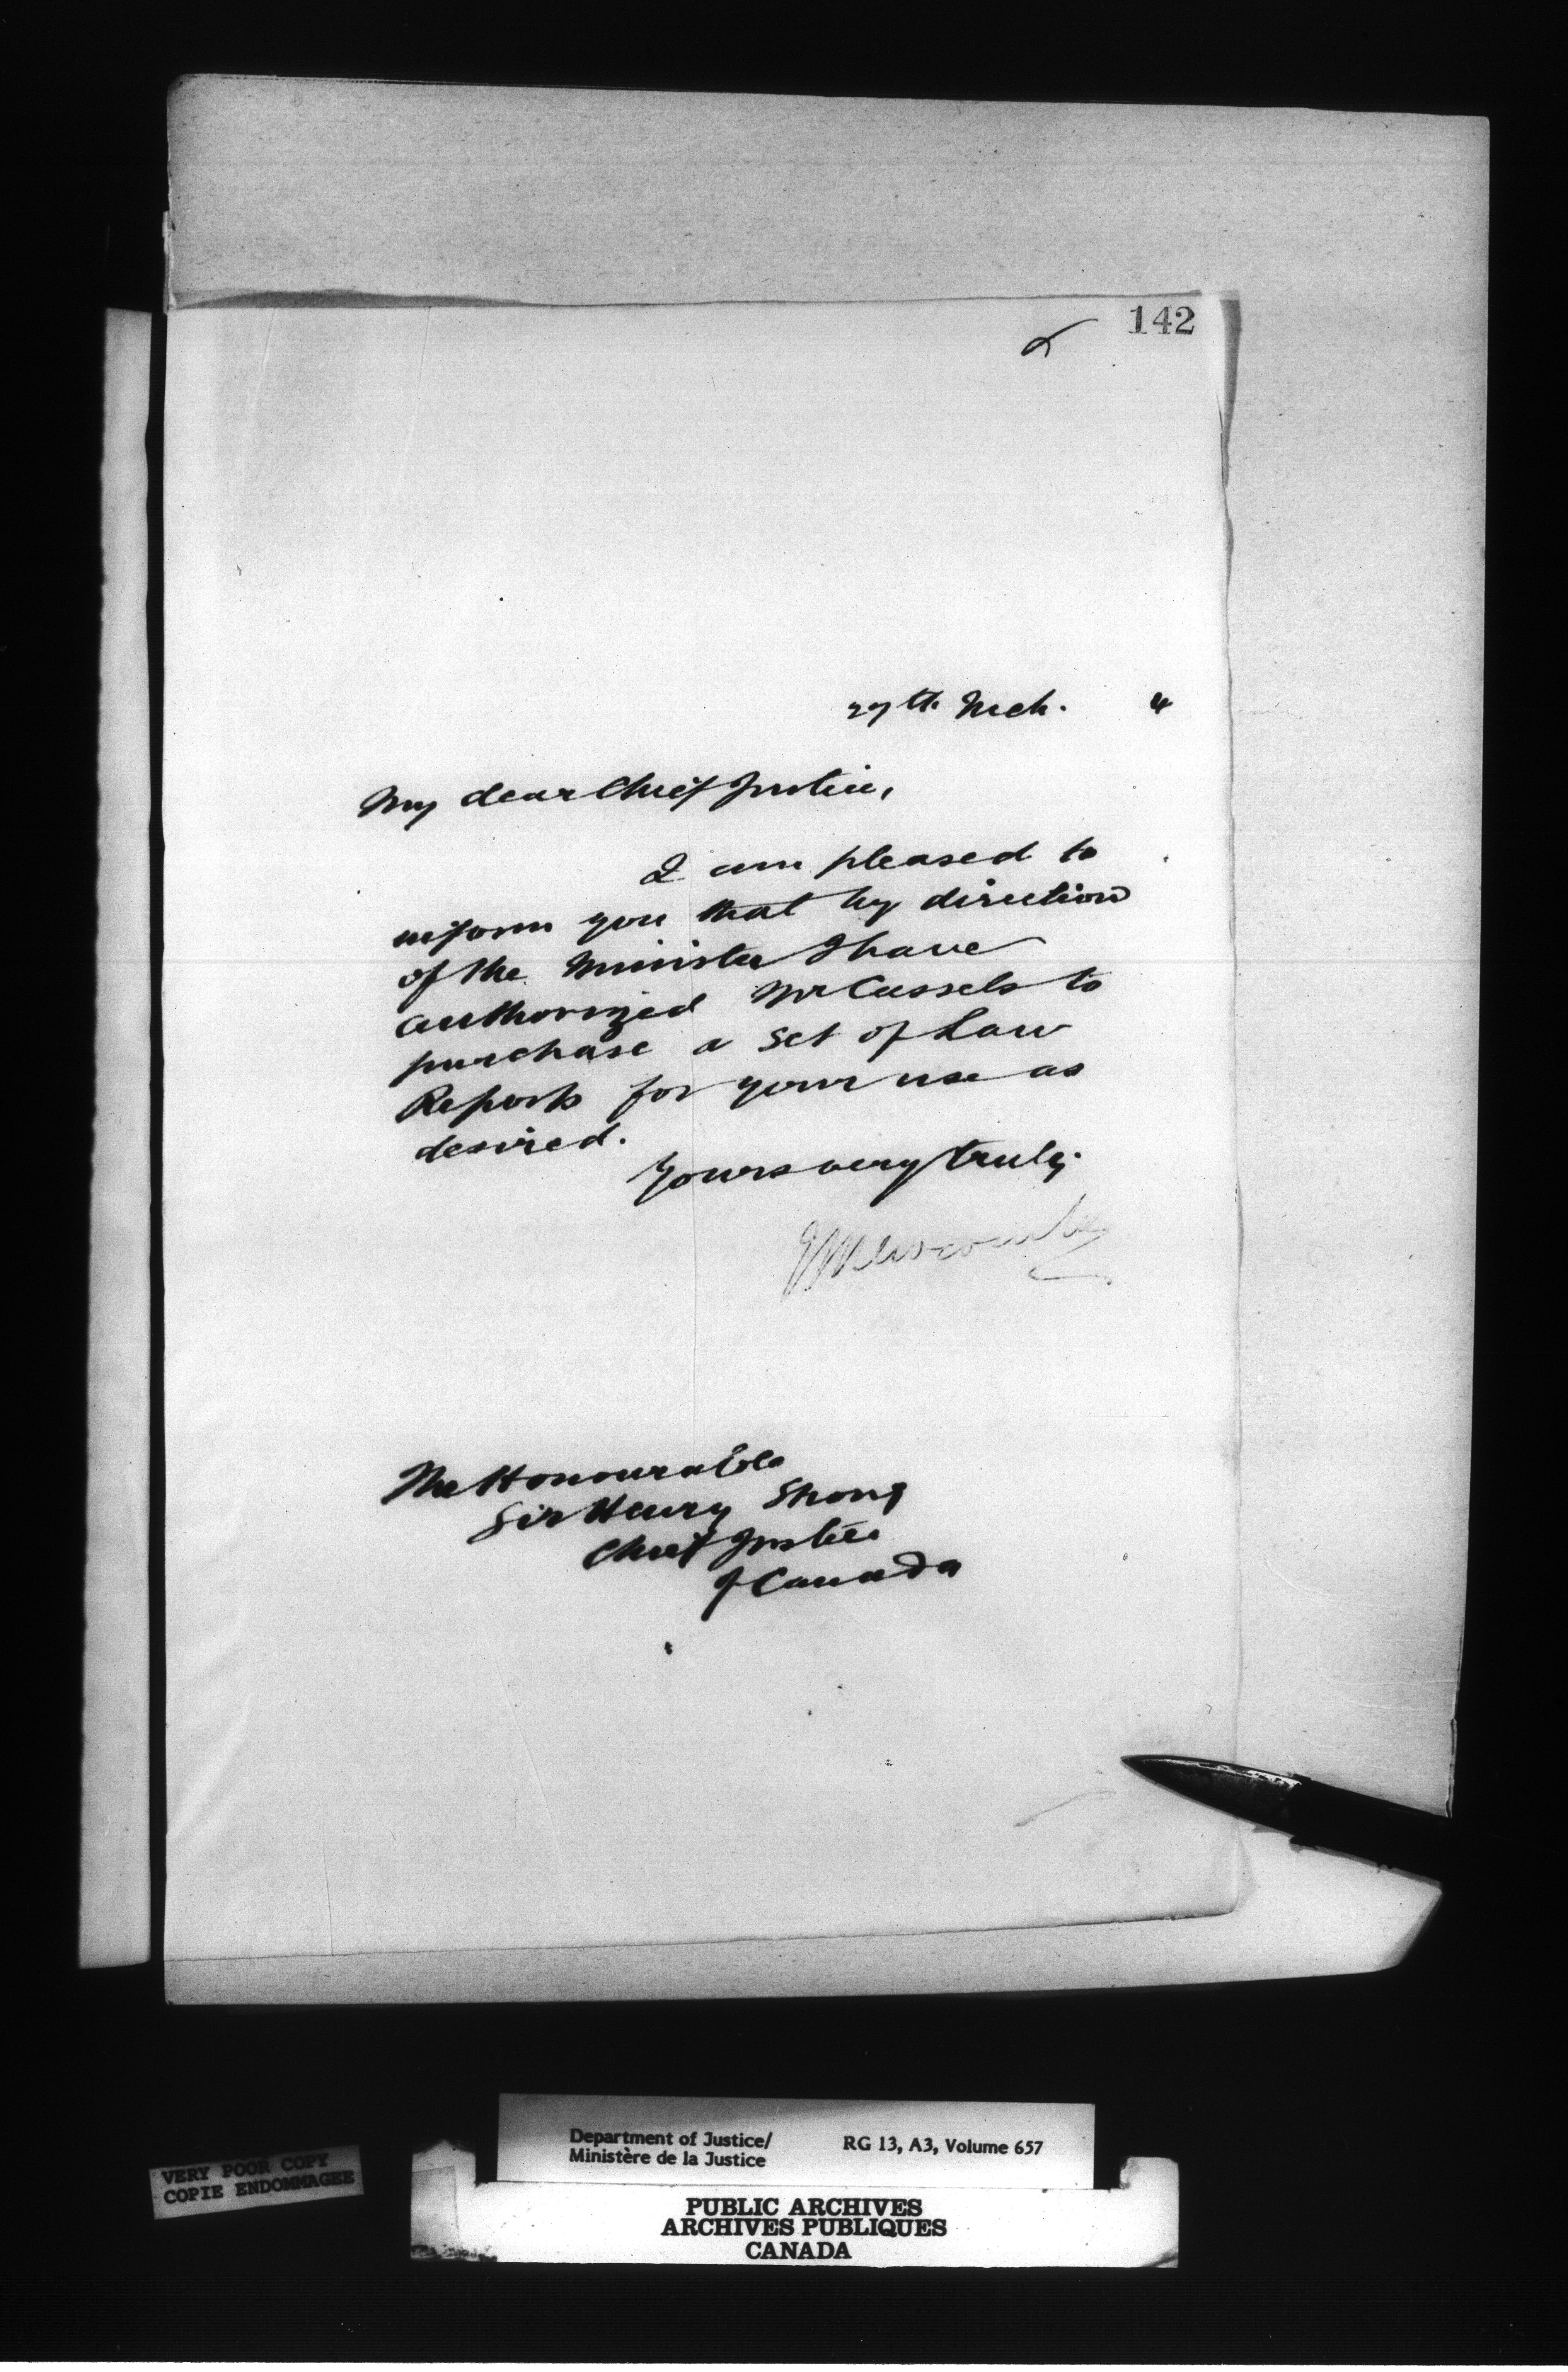 142
27th Mch. 4
My dear Chief Justice,
I am pleased to
inform you that by direction
of the Minister I have
authorized Mr Cassels to
purchase a set of Law
Reports for your use as
desired.
Yours very truly
Newcombe
The Honourable
Sir Henry Strong
Chief Justice
of Canada
Department of Justice/
Ministère de la Justice
RG 13, A3, Volume 657
VERY POOR COPY
COPIE ENDOMMAGEE
PUBLIC ARCHIVES
ARCHIVES PUBLIQUES
CANADA